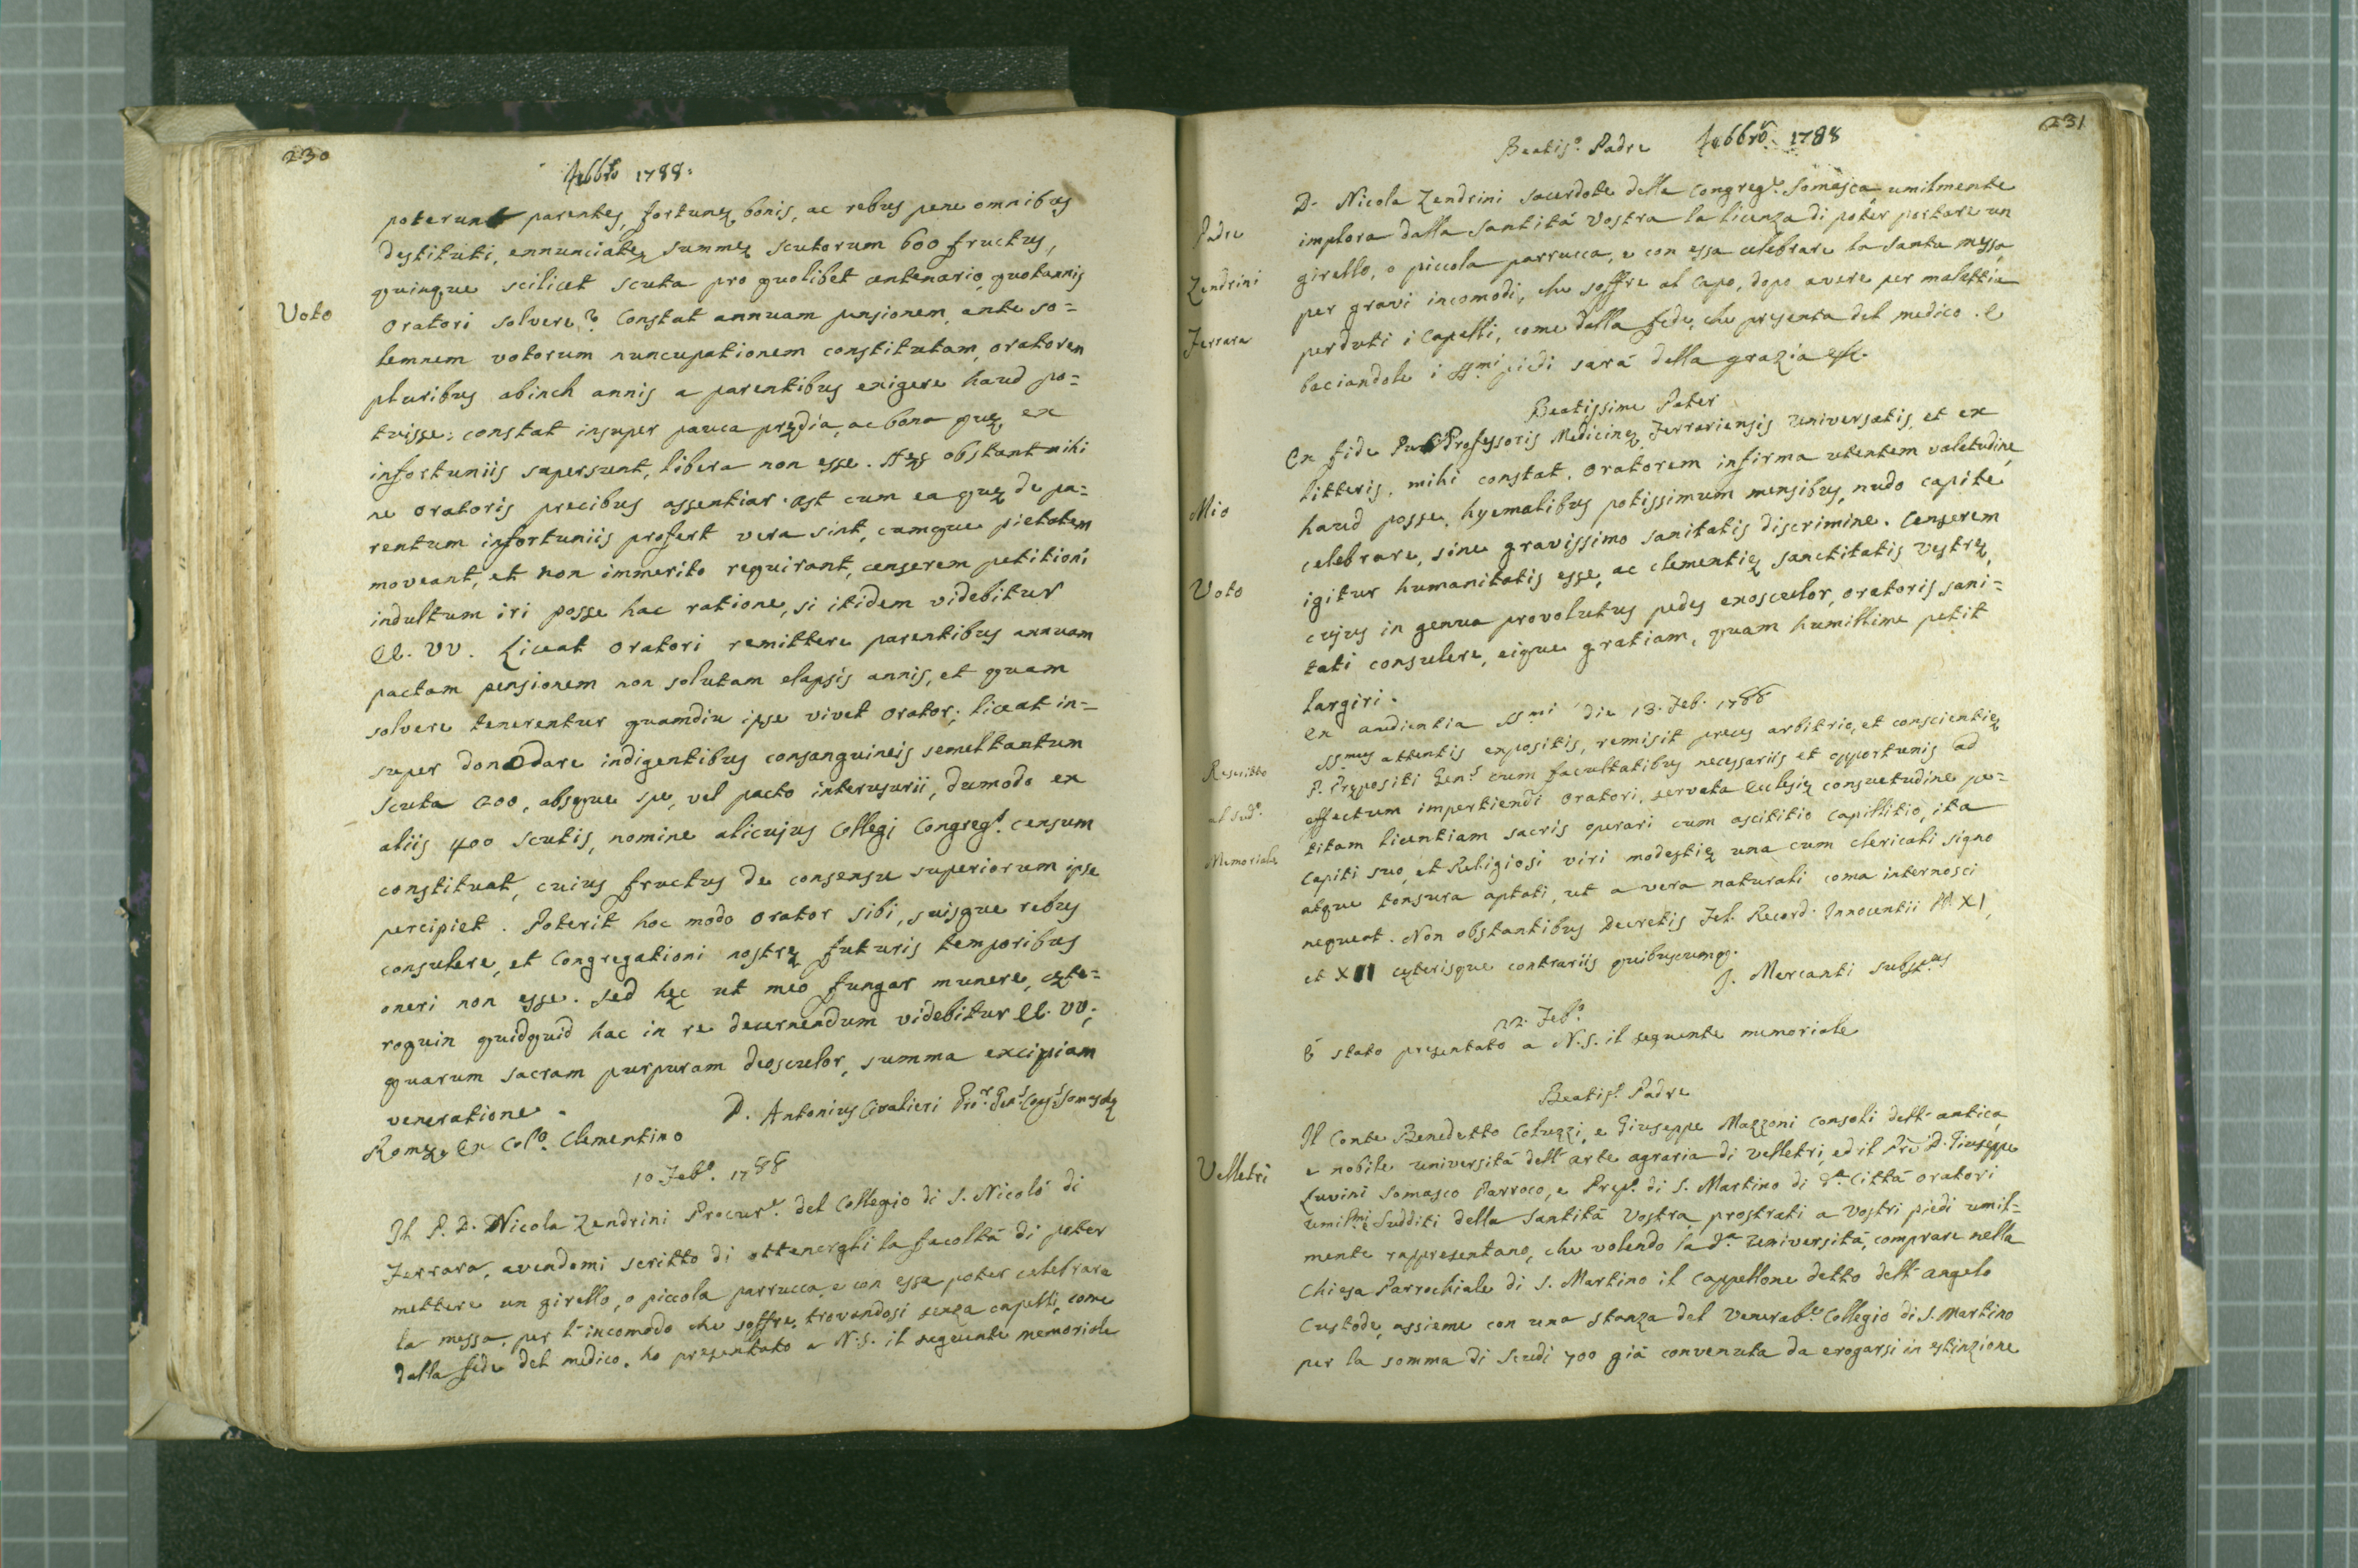 230
Febbro 1788.
poterunt parentes, fortunę bonis, ac rebus pene omnibus
destituti, ennunciatę summę scutorum 600 fructus,
quinque scilicet scuta pro quolibet centenario quotannis
Voto
oratori solvere? Constat annuam pensionem, ante so=
lemnem votorum nuncupationem constitutam, oratorem
pluribus abinch annis a parentibus exigere haud po=
tuisse: constat insuper pauca prędia, ac bona quę ex
infortuniis supersunt, libera non esse. Hęc obstant mihi
ne oratoris precibus assentiar. ast cum ea quę de pa=
rentum infortuniis profert vera sint, cumque pietatem
moveant, et non immerito requirant, censerem petitioni
indultum iri posse hac ratione, si itidem videbitur
EE. VV. Liceat oratori remittere parentibus annuam
pactam pensionem non solutam elapsis annis, et quam
solvere tenerentur quamdiu ipse vivet orator; liceat in=
super dono dare indigentibus consanguineis semel tantum
scuta 200, absque spe, vel pacto interusurii, dumodo ex
aliis 400 scutis, nomine alicujus Collegi Congregs. censum
constituat, cuius fructus de consensu superiorum ipse
percipiet. Poterit hoc modo orator sibi, suisque rebus
consulere, et Congregationi nostrę futuris temporibus
oneri non esse. Sed hęc ut meo fungar munere, cęte=
roquin quidquid hac in re decernendum videbitur EE. VV;
quarum sacram purpuram deosculor, summa excipiam
veneratione.
D. Antonius Civalieri Pror. Gens. Congs. Somaschę
Romę, Ex Colo. Clementino
10 Febo. 1788
Il P. D. Nicola Zendrini Procure. del Collegio di S. Nicolò di
Ferrara, avendomi scritto di ottenergli la facoltà di poter
mettere un girello, o piccola parrucca, e con essa poter celebrare
la messa, per l'incomodo che soffre, trovandosi senza capelli, come
dalla fede del medico, ho presentato a N.S. il seguente memoriale
231
Beatiso. Padre Febbro. 1788
Padre
Zendrini
Ferrara
D. Nicola Zendrini sacerdote della Congrege. Somasca umilmente
implora dalla Santità Vostra la licenza di poter portare un
girello, o piccola parrucca, e con essa celebrare la santa messa,
per gravi incomodi, che soffre al capo, dopo avere per malattia
perduti i capelli, come dalla fede, che presenta del medico. E
baciandole i SSmi piedi sarà della grazia etc.
Beatissime Pater
Mio
Voto
Ex fide Pub. Professoris Medicinę Ferrariensis Universatis, et ex
litteris, mihi constat, oratorem infirma utentem valetudine,
haud posse, hyemalibus potissimum mensibus, nudo capite
celebrare, sine gravissimo sanitatis discrimine. Censerem
igitur humanitatis esse, ac clementię sanctitatis vestrę,
cujus in genua provolutus pedes exosculor, oratoris sani=
tati consulere, eique gratiam, quam humillime petit
largiri.
Ex audientia SSmi die 13. Feb. 1788
Rescritto
al sudo.
Memoriale
SSmus attentis expositis, remisit preces arbitrio, et conscientię
P. Prępositi Gens cum facultatibus necessariis et opportunis ad
effectum impertiendi oratori, servata Ecclesię consuetudine pe=
titam licentiam sacris operari cum ascititio capillitio, ita
capiti suo, et Religiosi viri modestię una cum clericali signo
atque tonsura aptati, ut a vera naturali coma internosci
nequeat. Non obstantibus Decretis Fel. Record. Innocentii PP. XI,
et XII cęterisque contrariis quibuscumq.
J. Mercanti Substus
22. Febo.
È stato presentato a N.S. il seguente memoriale
Beatiso. Padre
Velletri
Il Conte Benedetto Coluzzi, e Giuseppe Mazzoni consoli dell'antica,
e nobile università dell'arte agraria di Velletri, ed il Pre D. Giuseppe
Luvini Somasco Parroco, e Prepo. di S. Martino di da. Città oratori
umilmi, e sudditi della Santità Vostra, prostrati a vostri piedi umil=
mente rappresentano, che volendo la da. Università, comprare nella
Chiesa Parrochiale di S. Martino il Cappellone detto dell'angelo
Custode, assieme con una stanza del Venerabe. Collegio di S. Martino
per la somma di scudi 700 già convenuta da erogarsi in estinzione